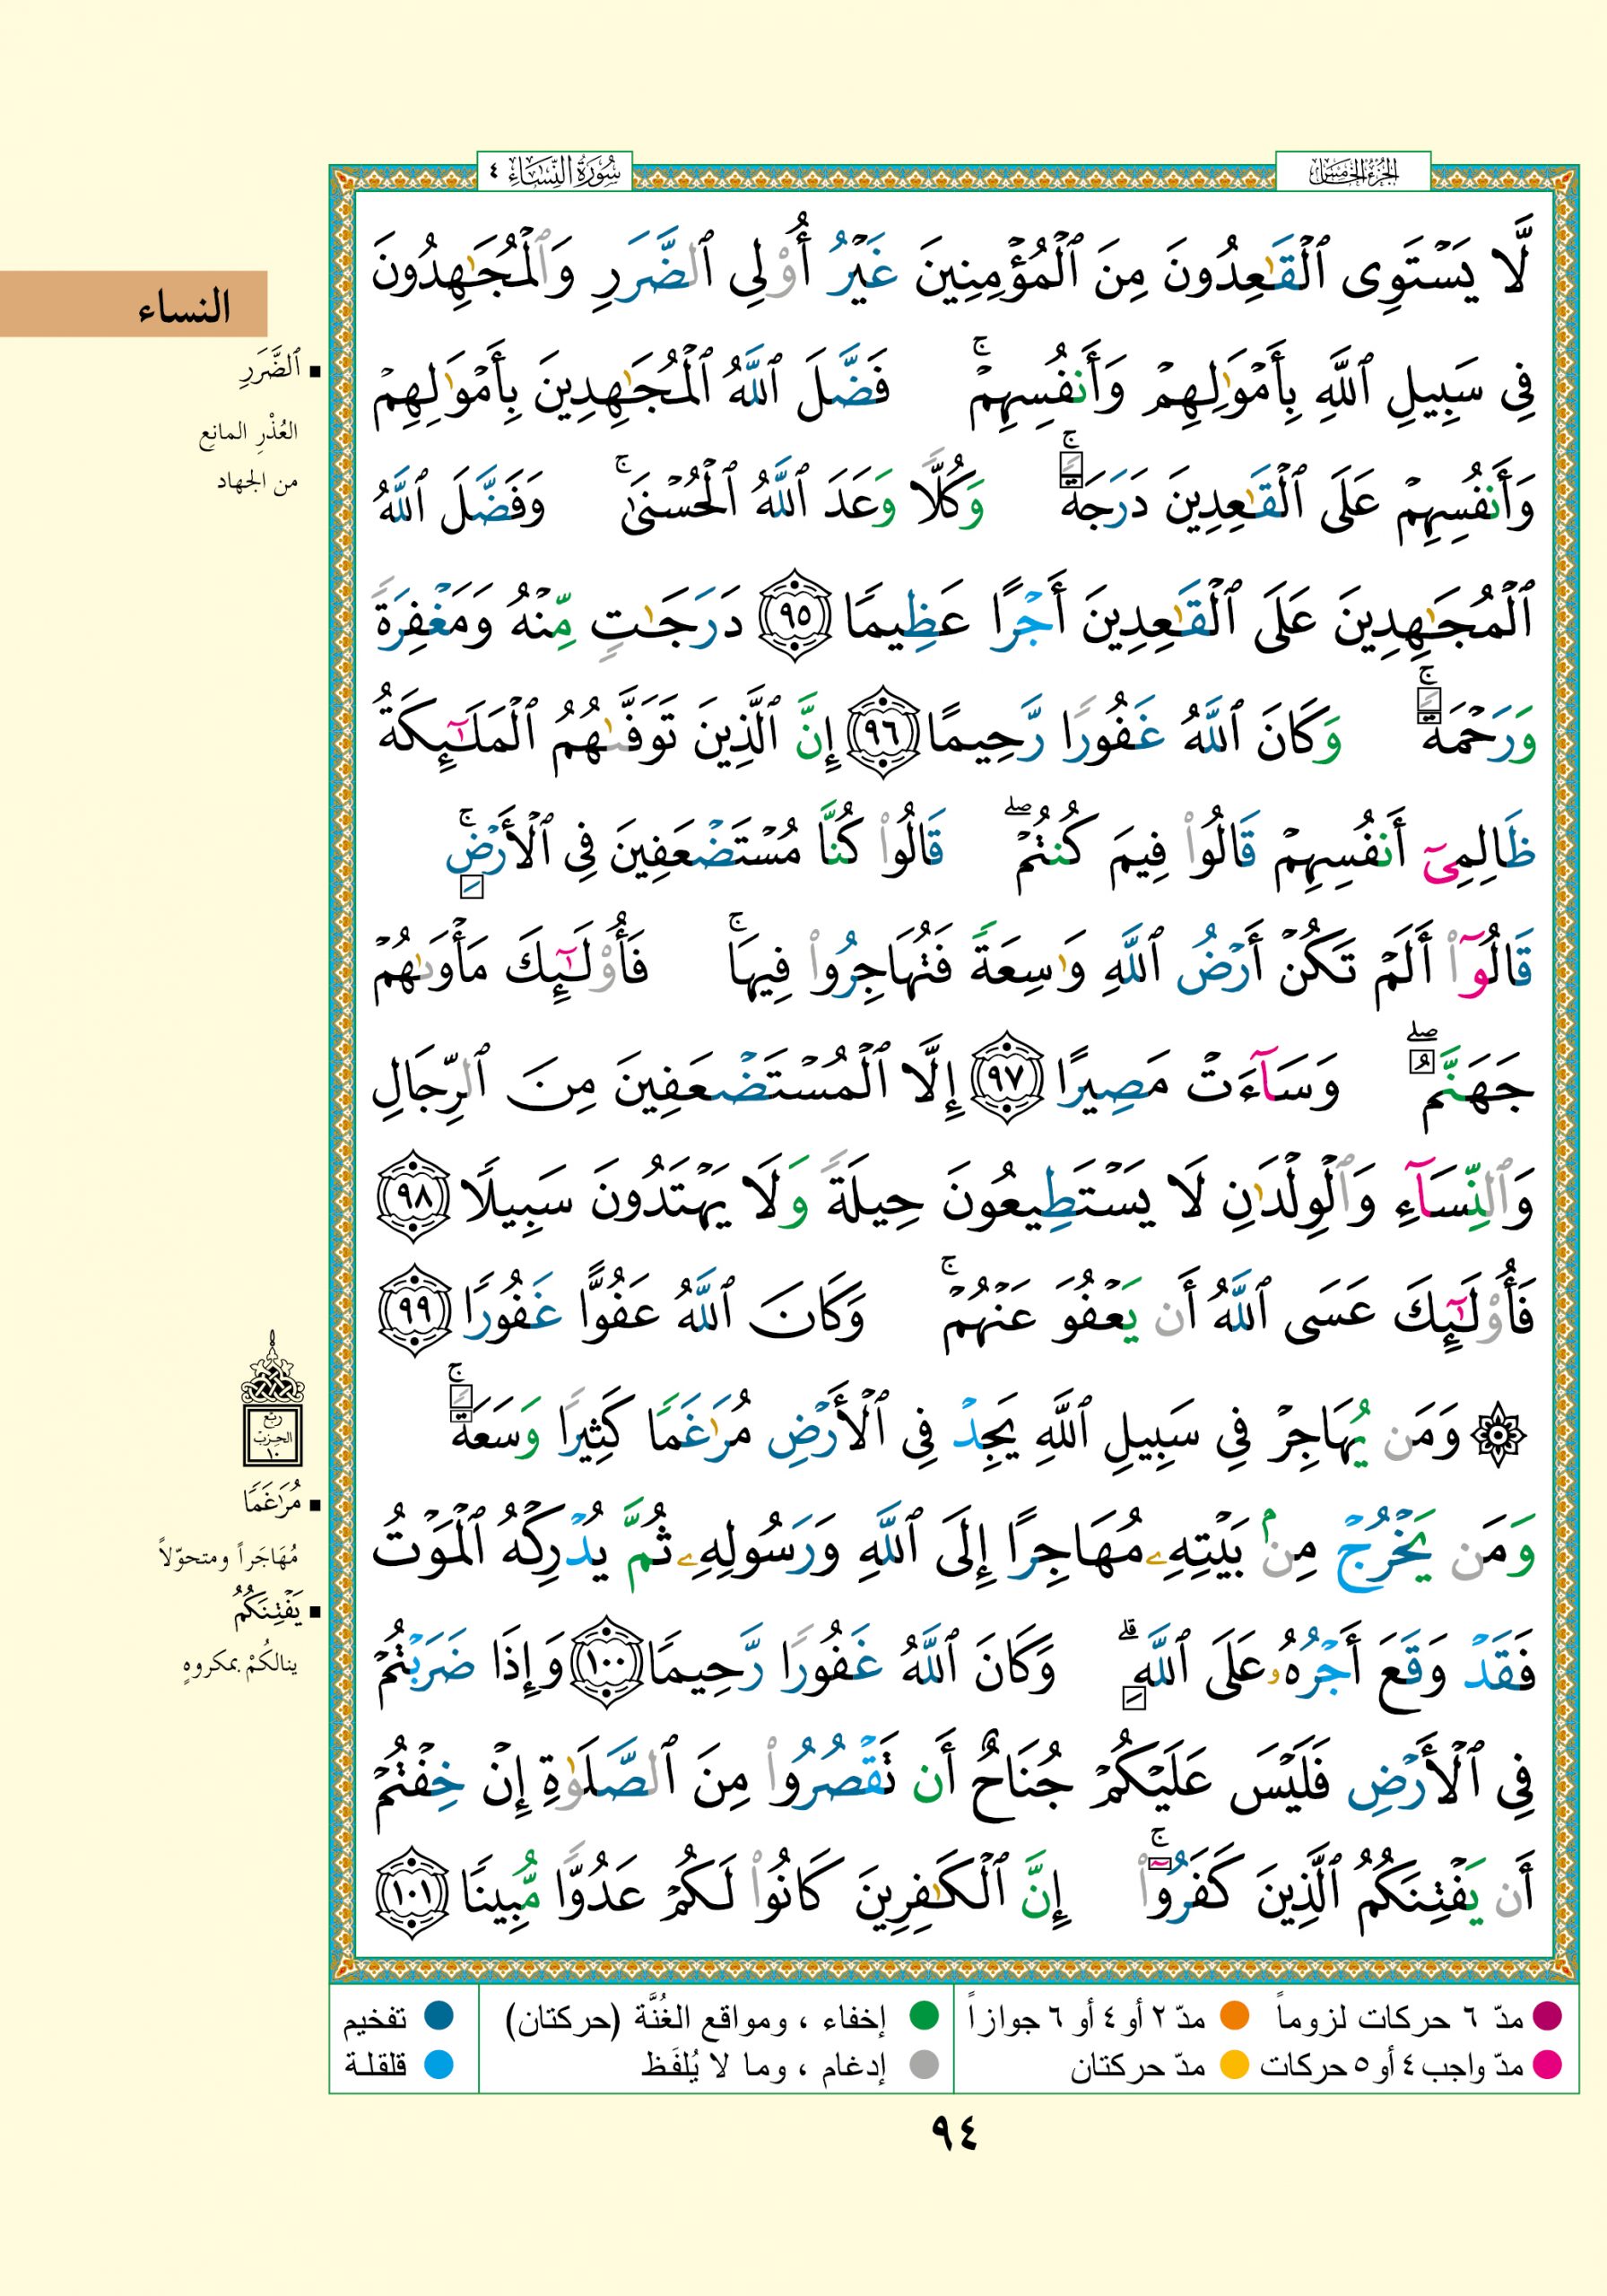 الجزء الخامس
سورة النساء ٤
لَّا يَسْتَوِى ٱلْقَٰعِدُونَ مِنَ ٱلْمُؤْمِنِينَ غَيْرُ أُو۟لِى ٱلضَّرَرِ وَٱلْمُجَٰهِدُونَ
فِى سَبِيلِ ٱللَّهِ بِأَمْوَٰلِهِمْ وَأَنفُسِهِمْ ۚ فَضَّلَ ٱللَّهُ ٱلْمُجَٰهِدِينَ بِأَمْوَٰلِهِمْ
وَأَنفُسِهِمْ عَلَى ٱلْقَٰعِدِينَ دَرَجَةً ۚ وَكُلًّا وَعَدَ ٱللَّهُ ٱلْحُسْنَىٰ ۚ وَفَضَّلَ ٱللَّهُ
ٱلْمُجَٰهِدِينَ عَلَى ٱلْقَٰعِدِينَ أَجْرًا عَظِيمًا ٩٥ دَرَجَٰتٍ مِّنْهُ وَمَغْفِرَةً
وَرَحْمَةً ۚ وَكَانَ ٱللَّهُ غَفُورًا رَّحِيمًا ٩٦ إِنَّ ٱلَّذِينَ تَوَفَّىٰهُمُ ٱلْمَلَٰٓئِكَةُ
ظَالِمِىٓ أَنفُسِهِمْ قَالُوا۟ فِيمَ كُنتُمْ ۖ قَالُوا۟ كُنَّا مُسْتَضْعَفِينَ فِى ٱلْأَرْضِ ۚ
قَالُوٓا۟ أَلَمْ تَكُنْ أَرْضُ ٱللَّهِ وَٰسِعَةً فَتُهَاجِرُوا۟ فِيهَا ۚ فَأُو۟لَٰٓئِكَ مَأْوَىٰهُمْ
جَهَنَّمُ ۖ وَسَآءَتْ مَصِيرًا ٩٧ إِلَّا ٱلْمُسْتَضْعَفِينَ مِنَ ٱلرِّجَالِ
وَٱلنِّسَآءِ وَٱلْوِلْدَٰنِ لَا يَسْتَطِيعُونَ حِيلَةً وَلَا يَهْتَدُونَ سَبِيلًا ٩٨
فَأُو۟لَٰٓئِكَ عَسَى ٱللَّهُ أَن يَعْفُوَ عَنْهُمْ ۚ وَكَانَ ٱللَّهُ عَفُوًّا غَفُورًا ٩٩
۞ وَمَن يُهَاجِرْ فِى سَبِيلِ ٱللَّهِ يَجِدْ فِى ٱلْأَرْضِ مُرَٰغَمًا كَثِيرًا وَسَعَةً ۚ
وَمَن يَخْرُجْ مِنۢ بَيْتِهِۦ مُهَاجِرًا إِلَى ٱللَّهِ وَرَسُولِهِۦ ثُمَّ يُدْرِكْهُ ٱلْمَوْتُ
فَقَدْ وَقَعَ أَجْرُهُۥ عَلَى ٱللَّهِ ۗ وَكَانَ ٱللَّهُ غَفُورًا رَّحِيمًا ١٠٠ وَإِذَا ضَرَبْتُمْ
فِى ٱلْأَرْضِ فَلَيْسَ عَلَيْكُمْ جُنَاحٌ أَن تَقْصُرُوا۟ مِنَ ٱلصَّلَوٰةِ إِنْ خِفْتُمْ
أَن يَفْتِنَكُمُ ٱلَّذِينَ كَفَرُوٓا۟ ۚ إِنَّ ٱلْكَٰفِرِينَ كَانُوا۟ لَكُمْ عَدُوًّا مُّبِينًا ١٠١
النساء
ٱلضَّرَرِ
العُذْرِ المانِع
من الجهاد
ربع
الحزب
١٠
مُرَٰغَمًا
مُهَاجَراً ومتحوّلاً
يَفْتِنَكُمُ
ينالكُمْ بمكروهٍ
مدّ ٦ حركات لزوماً مدّ ٢ أو ٤ أو ٦ جوازاً إخفاء ، ومواقع الغُنَّة (حركتان) تفخيم
مدّ واجب ٤ أو ٥ حركات مدّ حركتان إدغام ، وما لا يُلفَظ قلقلة
٩٤